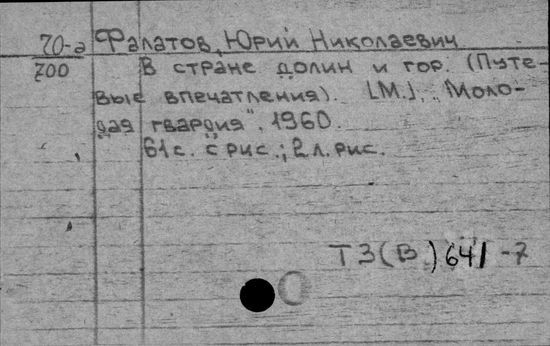 70-а Фалатов, Юрий Николаевич
700 В стране долин и гор. (Путе-
вые впечатления). [М.], „Моло-
дая гвардия", 1960.
61 с. с рис.; 2 л. рис.
Т3(В.)641-7